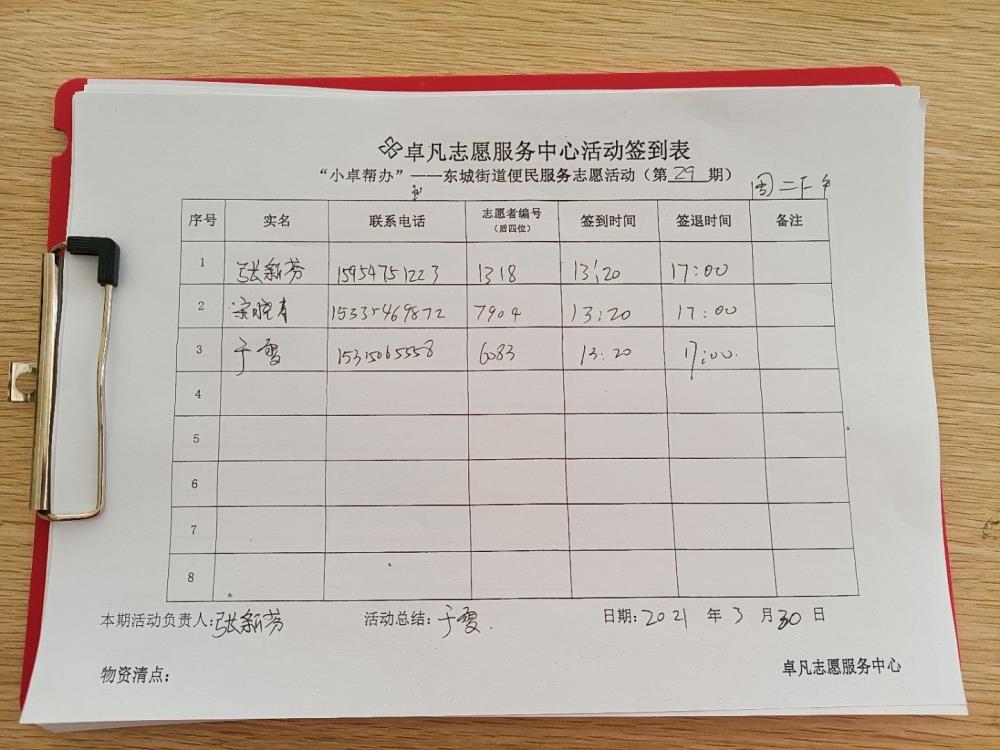 卓凡志愿服务中心活动签到表
“小卓帮办”——东城街道便民服务志愿活动（第 29 期）
周二下午
序号 实名 联系电话 志愿者编号（后四位） 签到时间 签退时间 备注
1 张新芳 15954751223 1318 13:20 17:00
2 15335469872 7904 13:20 17:00
3 于雪 15315065558 6083 13:20 17:00.
4
5
6
7
8
本期活动负责人:张新芳 活动总结:于雪. 日期:2021 年 3 月 30 日
物资清点: 卓凡志愿服务中心